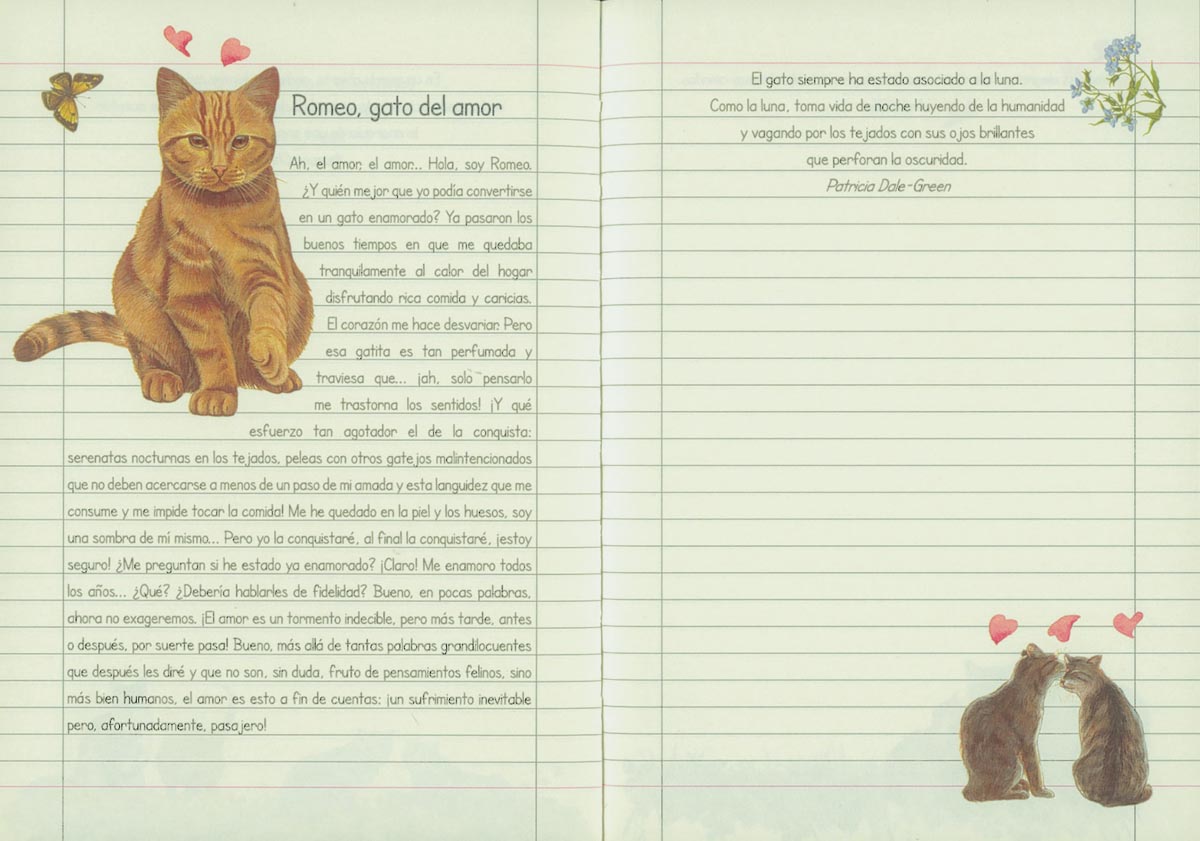 Romeo, gato del amor
Ah, el amor, el amor... Hola, soy Romeo.
¿Y quién mejor que yo podía convertirse
en un gato enamorado? Ya pasaron los
buenos tiempos en que me quedaba
tranquilamente al calor del hogar
disfrutando rica comida y caricias.
El corazón me hace desvariar. Pero
esa gatita es tan perfumada y
traviesa que... ¡ah, solo pensarlo
me trastorna los sentidos! ¡Y qué
esfuerzo tan agotador el de la conquista:
serenatas nocturnas en los tejados, peleas con otros gatejos malintencionados
que no deben acercarse a menos de un paso de mi amada y esta languidez que me
consume y me impide tocar la comida! Me he quedado en la piel y los huesos, soy
una sombra de mí mismo... Pero yo la conquistaré, al final la conquistaré, ¡estoy
seguro! ¿Me preguntan si he estado ya enamorado? ¡Claro! Me enamoro todos
los años... ¿Qué? ¿Debería hablarles de fidelidad? Bueno, en pocas palabras,
ahora no exageremos. ¡El amor es un tormento indecible, pero más tarde, antes
o después, por suerte pasa! Bueno, más allá de tantas palabras grandilocuentes
que después les diré y que no son, sin duda, fruto de pensamientos felinos, sino
más bien humanos, el amor es esto a fin de cuentas: ¡un sufrimiento inevitable
pero, afortunadamente, pasajero!
El gato siempre ha estado asociado a la luna.
Como la luna, toma vida de noche huyendo de la humanidad
y vagando por los tejados con sus ojos brillantes
que perforan la oscuridad.
Patricia Dale-Green